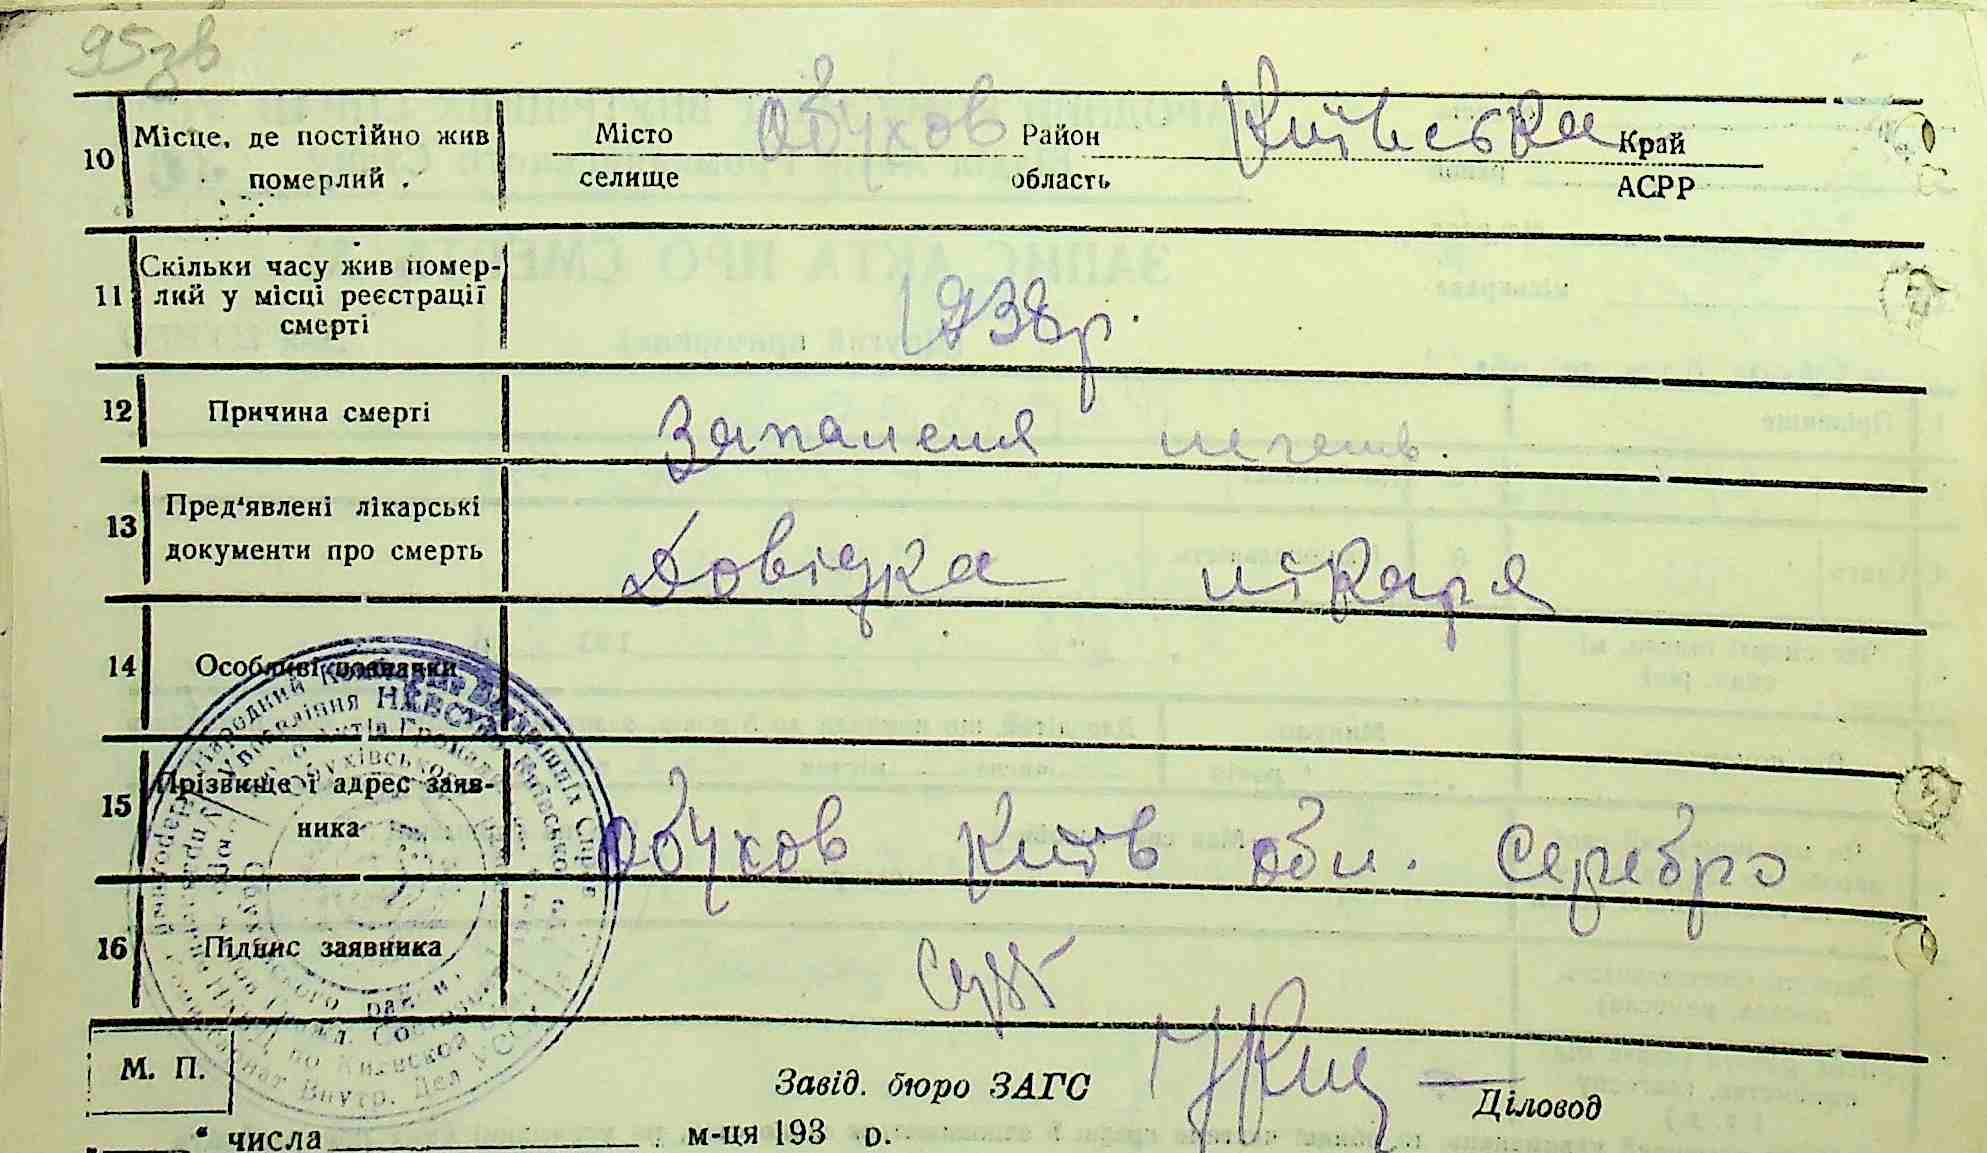 95зв
10 Місце, де постійно жив померлий. Місто селище Обухов Район область Київська Край АСРР
11 Скільки часу жив померлий у місці реєстрації смерті 1938р.
12 Причина смерті Запаленя легенів.
13 Пред'явлені лікарські документи про смерть Довідка лікаря
14 Особливі позначки
15 Прізвище і адрес заявника Обухов Київ обл. Серебро
16 Підпис заявника
М. П. Завід. бюро ЗАГС Діловод
" числа м-ця 193 р.